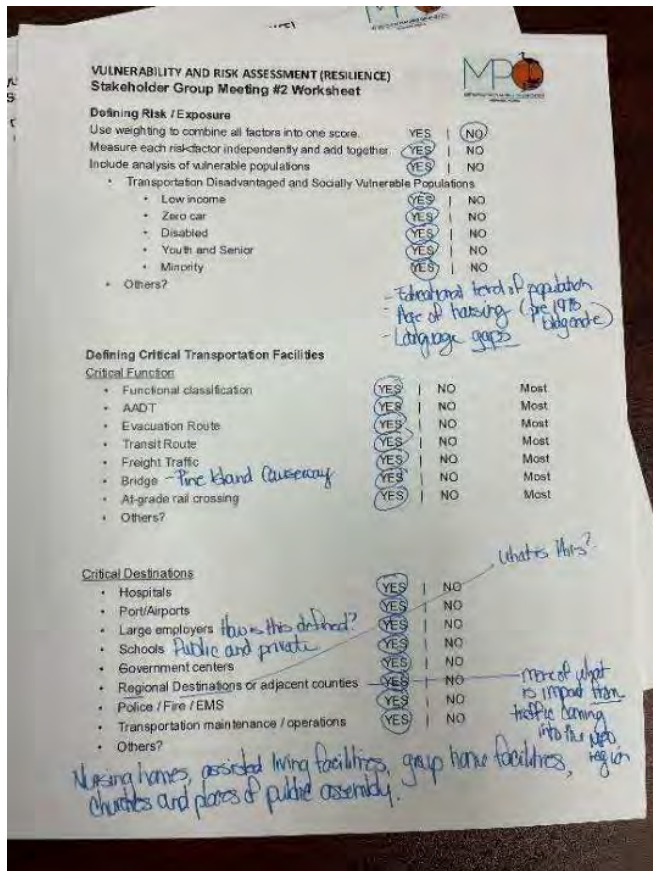 MPO
VULNERABILITY AND RISK ASSESSMENT (RESILIENCE)
Stakeholder Group Meeting #2 Worksheet
Defining Risk / Exposure
Use weighting to combine all factors into one score. YES | NO
Measure each risk factor independently and add together. YES | NO
Include analysis of vulnerable populations YES | NO
• Transportation Disadvantaged and Socially Vulnerable Populations
• Low income YES | NO
• Zero car YES | NO
• Disabled YES | NO
• Youth and Senior YES | NO
• Minority YES | NO
• Others?
- Educational level of population
- Age of housing (pre 1978
bldg code)
- Language gaps
Defining Critical Transportation Facilities
Critical Function
• Functional classification YES | NO Most
• AADT YES | NO Most
• Evacuation Route YES | NO Most
• Transit Route YES | NO Most
• Freight Traffic YES | NO Most
• Bridge - Pine Island Causeway YES | NO Most
• At-grade rail crossing YES | NO Most
• Others?
what is this?
Critical Destinations
• Hospitals YES | NO
• Port/Airports YES | NO
• Large employers How is this defined? YES | NO
• Schools Public and private YES | NO
• Government centers YES | NO
• Regional Destinations or adjacent counties YES NO
• Police / Fire / EMS YES | NO
• Transportation maintenance / operations YES | NO
• Others?
more of what
is impact from
traffic coming
into the MPO
region
Nursing homes, assisted living facilities, group home facilities,
churches and places of public assembly.